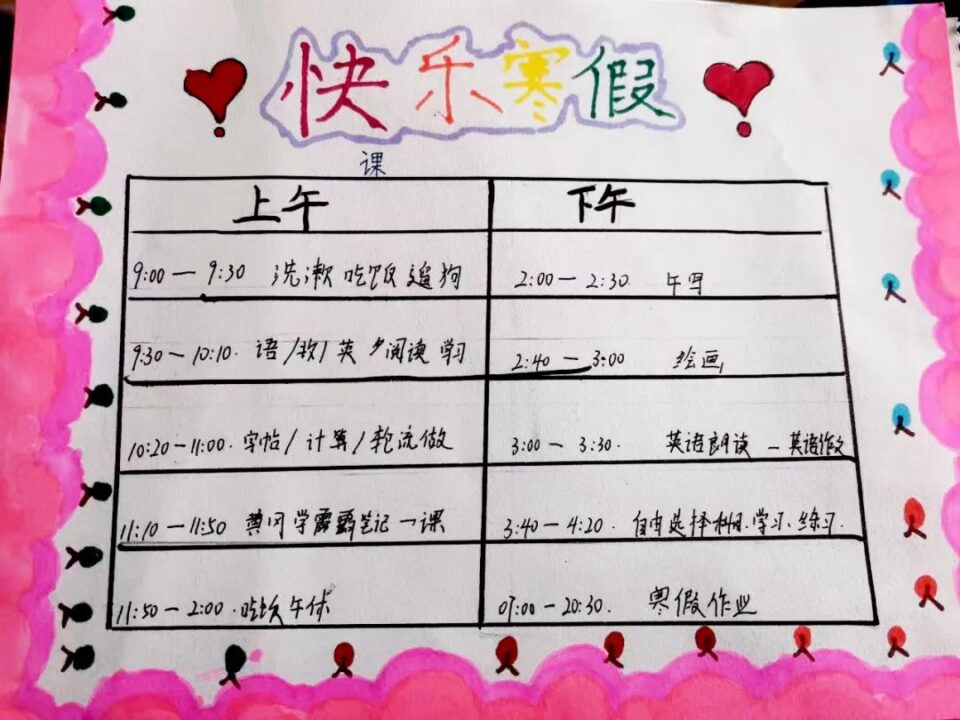 快乐寒假
课
上午 下午
9:00—9:30 洗漱 吃饭 遛狗 2:00—2:30. 午写
9:30—10:10. 语/数/英 阅读 学习 2:40—3:00 绘画
10:20—11:00. 字帖/计算/轮流做 3:00—3:30. 英语朗读 — 英语作文
11:10—11:50 黄冈学霸笔记一课 3:40—4:20. 自由选择科目.学习.练习.
11:50—2:00. 吃饭午休 07:00—20:30. 寒假作业